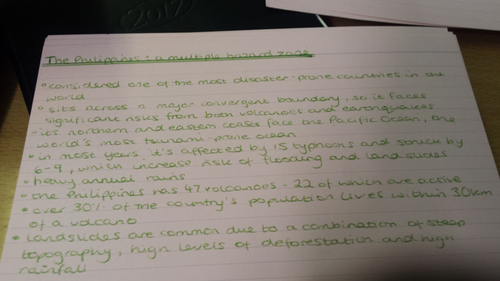 2017
The Philippines: a multiple hazard zone
• considered one of the most disaster-prone countries in the
world
• sits across a major convergent boundary, so it faces
significant risks from both volcanoes and earthquakes
• its northern and eastern coasts face the Pacific Ocean, the
world's most tsunami-prone ocean
• in most years it's affected by 15 typhoons and struck by
6-9, which increase risk of flooding and landslides
• heavy annual rains
• the Philippines has 47 volcanoes - 22 of which are active
• over 30% of the country's population lives within 30km
of a volcano
• landslides are common due to a combination of steep
topography, high levels of deforestation and high
rainfall